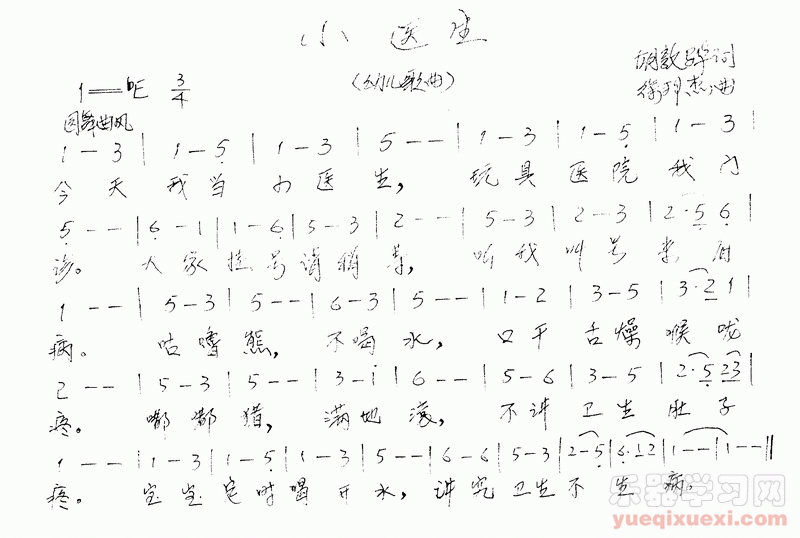 小医生
(幼儿歌曲)
1=♭E 3/4
胡敦骅词
徐邦杰曲
圆舞曲风
1 – 3 | 1 – 5̣ | 1 – 3 | 5 – – | 1 – 3 | 1 – 5̣ | 1 – 3 |
今天我当小医生，玩具医院我门
5̣ – – | 6̣ – 1 | 1 – 6̣ | 5 – 3 | 2 – – | 5 – 3 | 2 – 3 | 2 · 5̣ 6̣ |
诊。大家挂号请稍等，听我叫号来看
1 – – | 5 – 3 | 5 – – | 6 – 3 | 5 – – | 1 – 2 | 3 – 5 | 3 · 2 1 |
病。咕噜熊，不喝水，口干舌燥喉咙
2 – – | 5 – 3 | 5 – – | 3 – i | 6 – – | 5 – 6 | 3 – 5 | 2 · 5̣ 2 3 |
疼。嘟嘟猪，满地滚，不讲卫生肚子
1 – – | 1 – 3 | 1 – 5̣ | 1 – 3 | 5 – – | 6 – 6 | 5 – 3 | 2 – 5̣ | 6̣ · 1 2 | 1 – – | 1 – – ‖
疼。宝宝定时喝开水，讲究卫生不生病。
乐器学习网
yueqixuexi.com